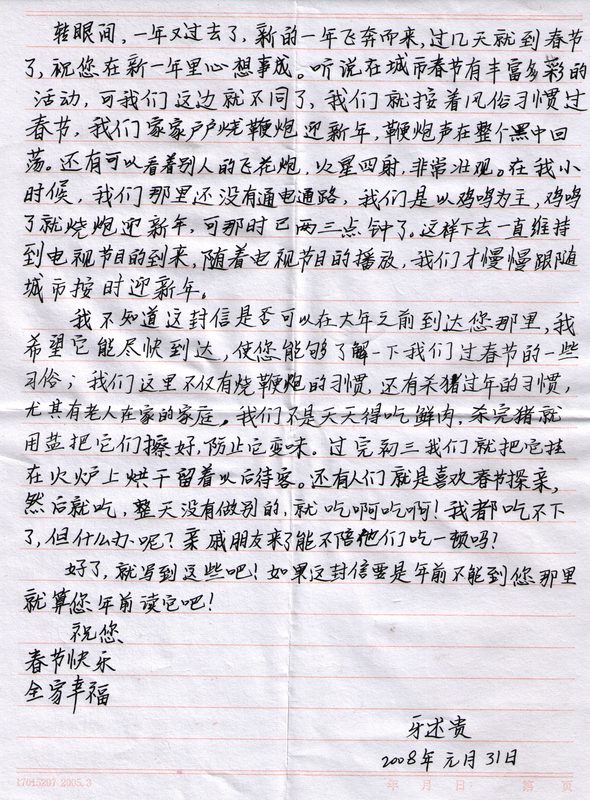 转眼间，一年又过去了，新的一年飞奔而来，过几天就到春节
了，祝您在新一年里心想事成。听说在城市春节有丰富多彩的
活动，可我们这边就不同了，我们就按着风俗习惯过
春节，我们家家户户烧鞭炮迎新年，鞭炮声在整个黑中回
荡。还有可以看着别人的飞花炮，火星四射，非常壮观。在我小
时候，我们那里还没有通电通路，我们是以鸡鸣为主，鸡鸣
了就烧炮迎新年，可那时已两三点钟了。这样下去一直维持
到电视节目的到来，随着电视节目的播放，我们才慢慢跟随
城市按时迎新年。
我不知道这封信是否可以在大年之前到达您那里，我
希望它能尽快到达，使您能够了解一下我们过春节的一些
习俗；我们这里不仅有烧鞭炮的习惯，还有杀猪过年的习惯，
尤其有老人在家的家庭。我们不是天天得吃鲜肉，杀完猪就
用盐把它们擦好，防止它变味。过完初三我们就把它挂
在火炉上烘干留着以后待客。还有人们就是喜欢春节探亲，
然后就吃，整天没有做别的，就吃啊吃啊！我都吃不下
了，但什么办呢？亲戚朋友来了能不陪他们吃一顿吗？
好了，就写到这些吧！如果这封信要是年前不能到您那里
就算您年前读它吧！
祝您
春节快乐
全家幸福
牙述贵
2008年元月31日
17015207 2005.3
年 月 日 第 页